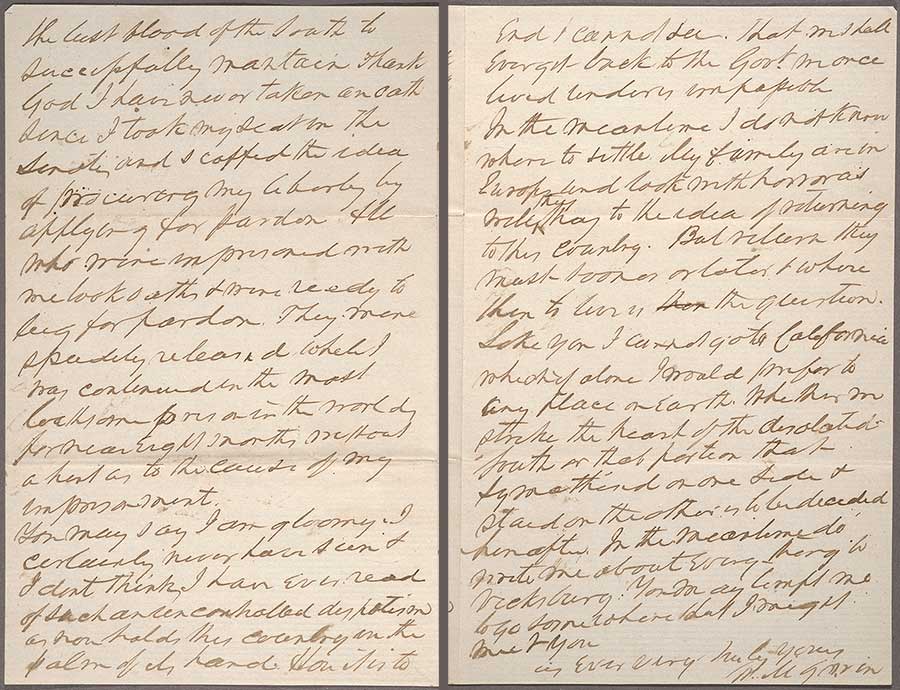 the last blood of the South to
successfully mantain Thank
God I have never taken an oath
since I took my seat in the
Senate, and scoffed the idea
of procureing my liberty by
applying for pardon. All
who were imprisoned with
me took oaths & were ready to
beg for pardon. They were
speadily released while I
was continued in the most
loathsome prison in the world,
for near eight months without
a hint as to the cause of my
imprisonment.
You may say I am gloomy. I
certainly never have seen &
I dont think, I have ever read
of such an uncontrolled despotism
as now holds this country in the
palm of its hand. How it is to
End I cannot see. That we shall
Ever get back to the Govt we once
lived under is impossible
In the meantime I do not know
where to settle My family are in
Europe and look with horror as
well they may to the idea of returning
to this country. But return they
must sooner or later & where
then to live is the question.
Like you I cannot go to California
which if alone I would prefer to
any place on Earth. Whether we
strike the heart of the desolated
South or that portion that
sympathised on one side &
staid on the other is to be decided
hereafter. In the meantime do
write me about Every thing to
Vicksburg. You may tempt me
to go somewhere but I might
meet you
as Ever very truly yours
W. M. Gwin